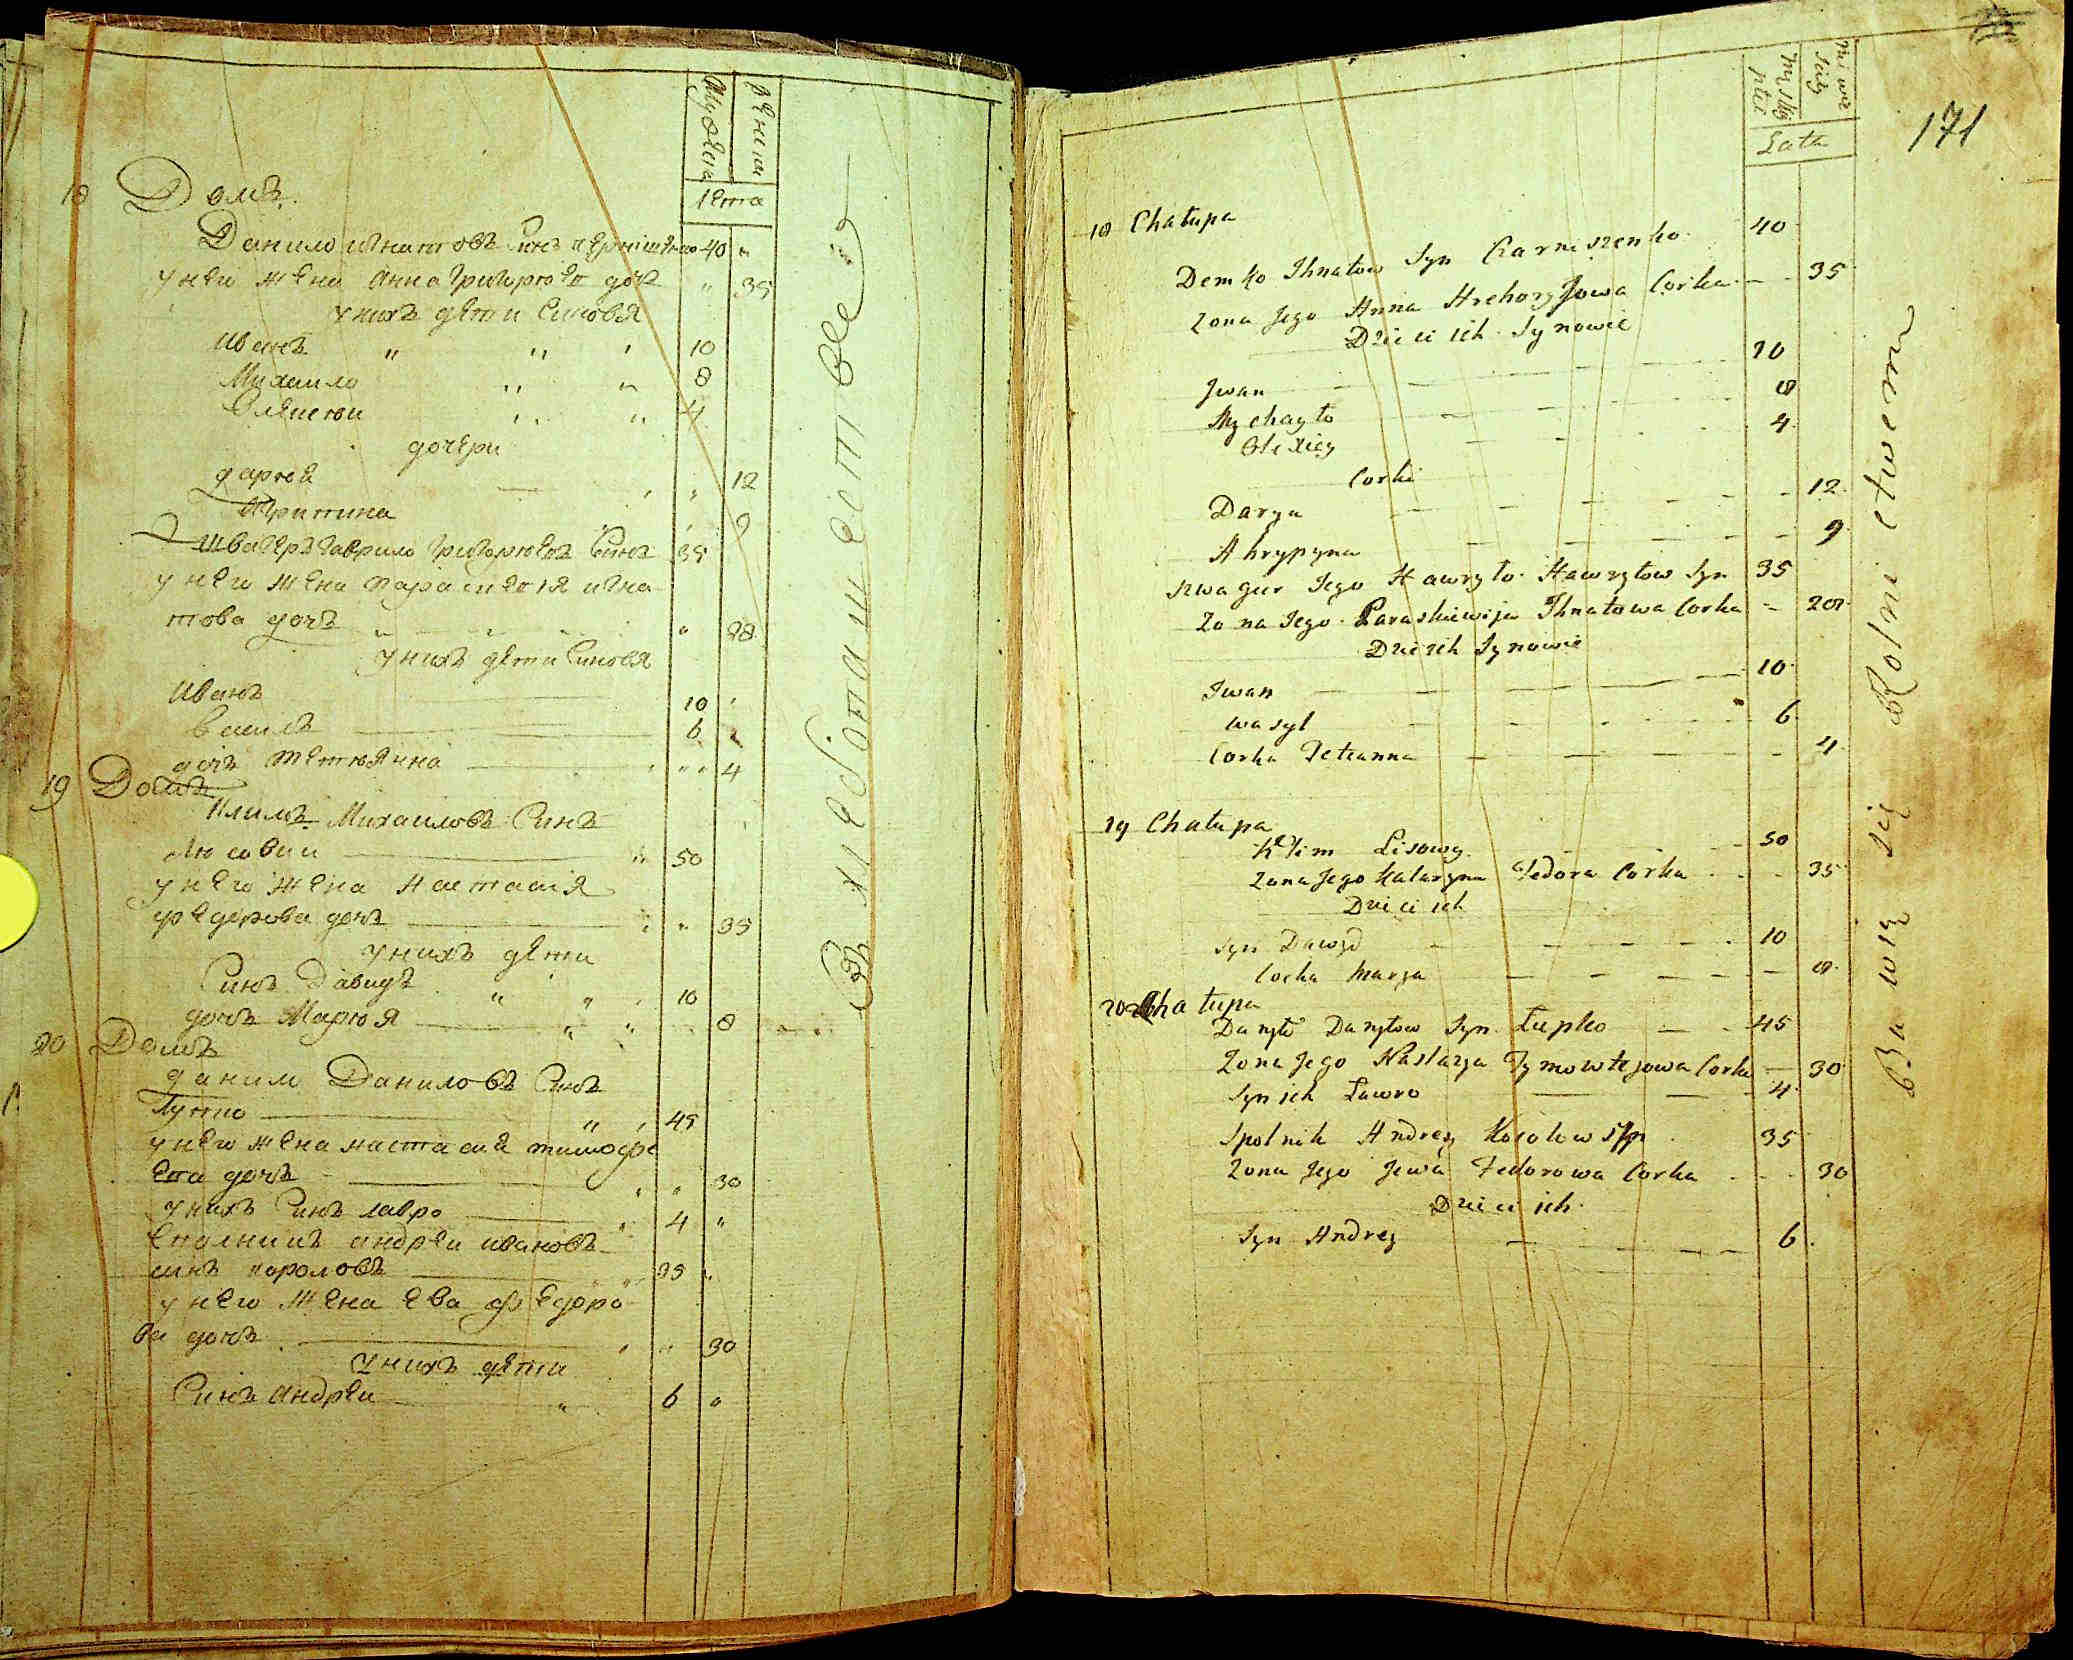 Мужеска
женска
лета
18 Домъ
Данило игнатовъ Синъ Чернишенко 40 "
у него жена Анна григорюва дочъ " 35
у нихъ дети Синовя
Иванъ " " " 10
Михаило " " 8
Олексеи " " 4
дочери
дарья " 12
Агрипина " 9
швагеръ гаврило григорювъ Синъ 35
у него жена парасковія игна
това дочъ " 28
у нихъ дети Синовя
Иванъ 10
василъ 6
дочъ тетіянна " " 4
19 Домъ
Климъ Михаиловъ Синъ
Лисовии " 50
у него жена Настасія
федорова дочъ " 35
у нихъ дети
Синъ Давидъ " " 10
дочъ Марюя " " 8
20 Домъ
данило Даниловъ Синъ
Лупко " 45
у него жена настасия тимофе
ева дочъ " " 30
у нихъ Синъ лавро " 4 "
Сполникъ андреи ивановъ
синъ короловъ " 35 "
у него жена Ева федоро
ва дочъ " " 30
у нихъ дети
Синъ Андреи " 6 "
В хлебопашестве
171
męskiey płci
niewie ściey
Lata
18 Chałupa
Demko Ihnatow Syn Czarniszenko 40
Zona Jego Anna Hrehoryjowa Corka 35
Dzieci ich Synowie
Jwan 10
Mychayło 8
Olexiey 4
Corki
Darya 12
Ahrypyna 9
szwagier Jego Hawryło Hawryłow Syn 35
Zona Jego Paraskiewija Ihnatowa Corka 28
Dzieci ich Synowie
Iwan 10
Wasyl 6
Corka Tetianna 4
19 Chałupa
Klim Lisowy 50
Zona Jego Katarzyna Fedora Corka 35
Dzieci ich
Syn Dawyd 10
Corka Marya 8
20 Chałupa
Danyło Danyłow Syn Łupko 45
Zona Jego Nastazya Tymowtejowa Corka 30
Syn ich Ławro 4
Spolnik Andrey Korolow Syn 35
Zona Jego Jewa Fedorowa Corka 30
Dzieci ich
Syn Andrey 6
Bawią się Rolnictwem